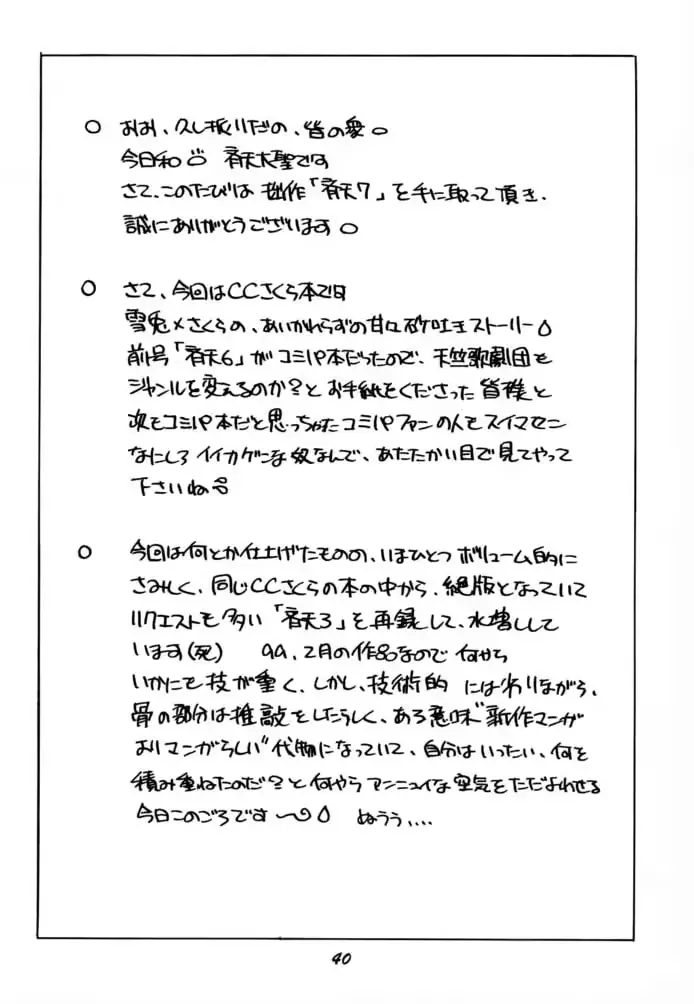 ○ おお、久し振りだの、皆の衆。
今日和 斉天大聖です
さて、このたびは 拙作「斉天7」を手に取って頂き、
誠にありがとうございます。
○ さて、今回はCCさくら本です
雪兎×さくらの、あいかわらずの甘々砂吐きストーリー
前号「斉天6」がコミパ本だったので、天竺歌劇団も
ジャンルを変えるのか?とお手紙をくださった皆様と
次もコミパ本だと思っちゃたコミパファンの人もスイマセン
なにしろイイカゲンな奴なんで、あたたかい目で見てやって
下さいね
○ 今回は何とか仕上げたものの、いまひとつ ボリューム的に
さみしく、同じCCさくらの本の中から、絶版となっていて
リクエストも多い「斉天3」を再録して、水増しして
います(死) 99.2月の作品なので 何やら
いかにも技が重く、しかし、技術的 には劣りながら、
骨の部分は推敲をしたらしく、ある意味"新作マンガ
よりマンガらしい"代物になっていて、自分はいったい、何を
積み重ねたのだ?と何やら アンニュイな空気をただよわせる
今日このごろです ぬうう、...
40